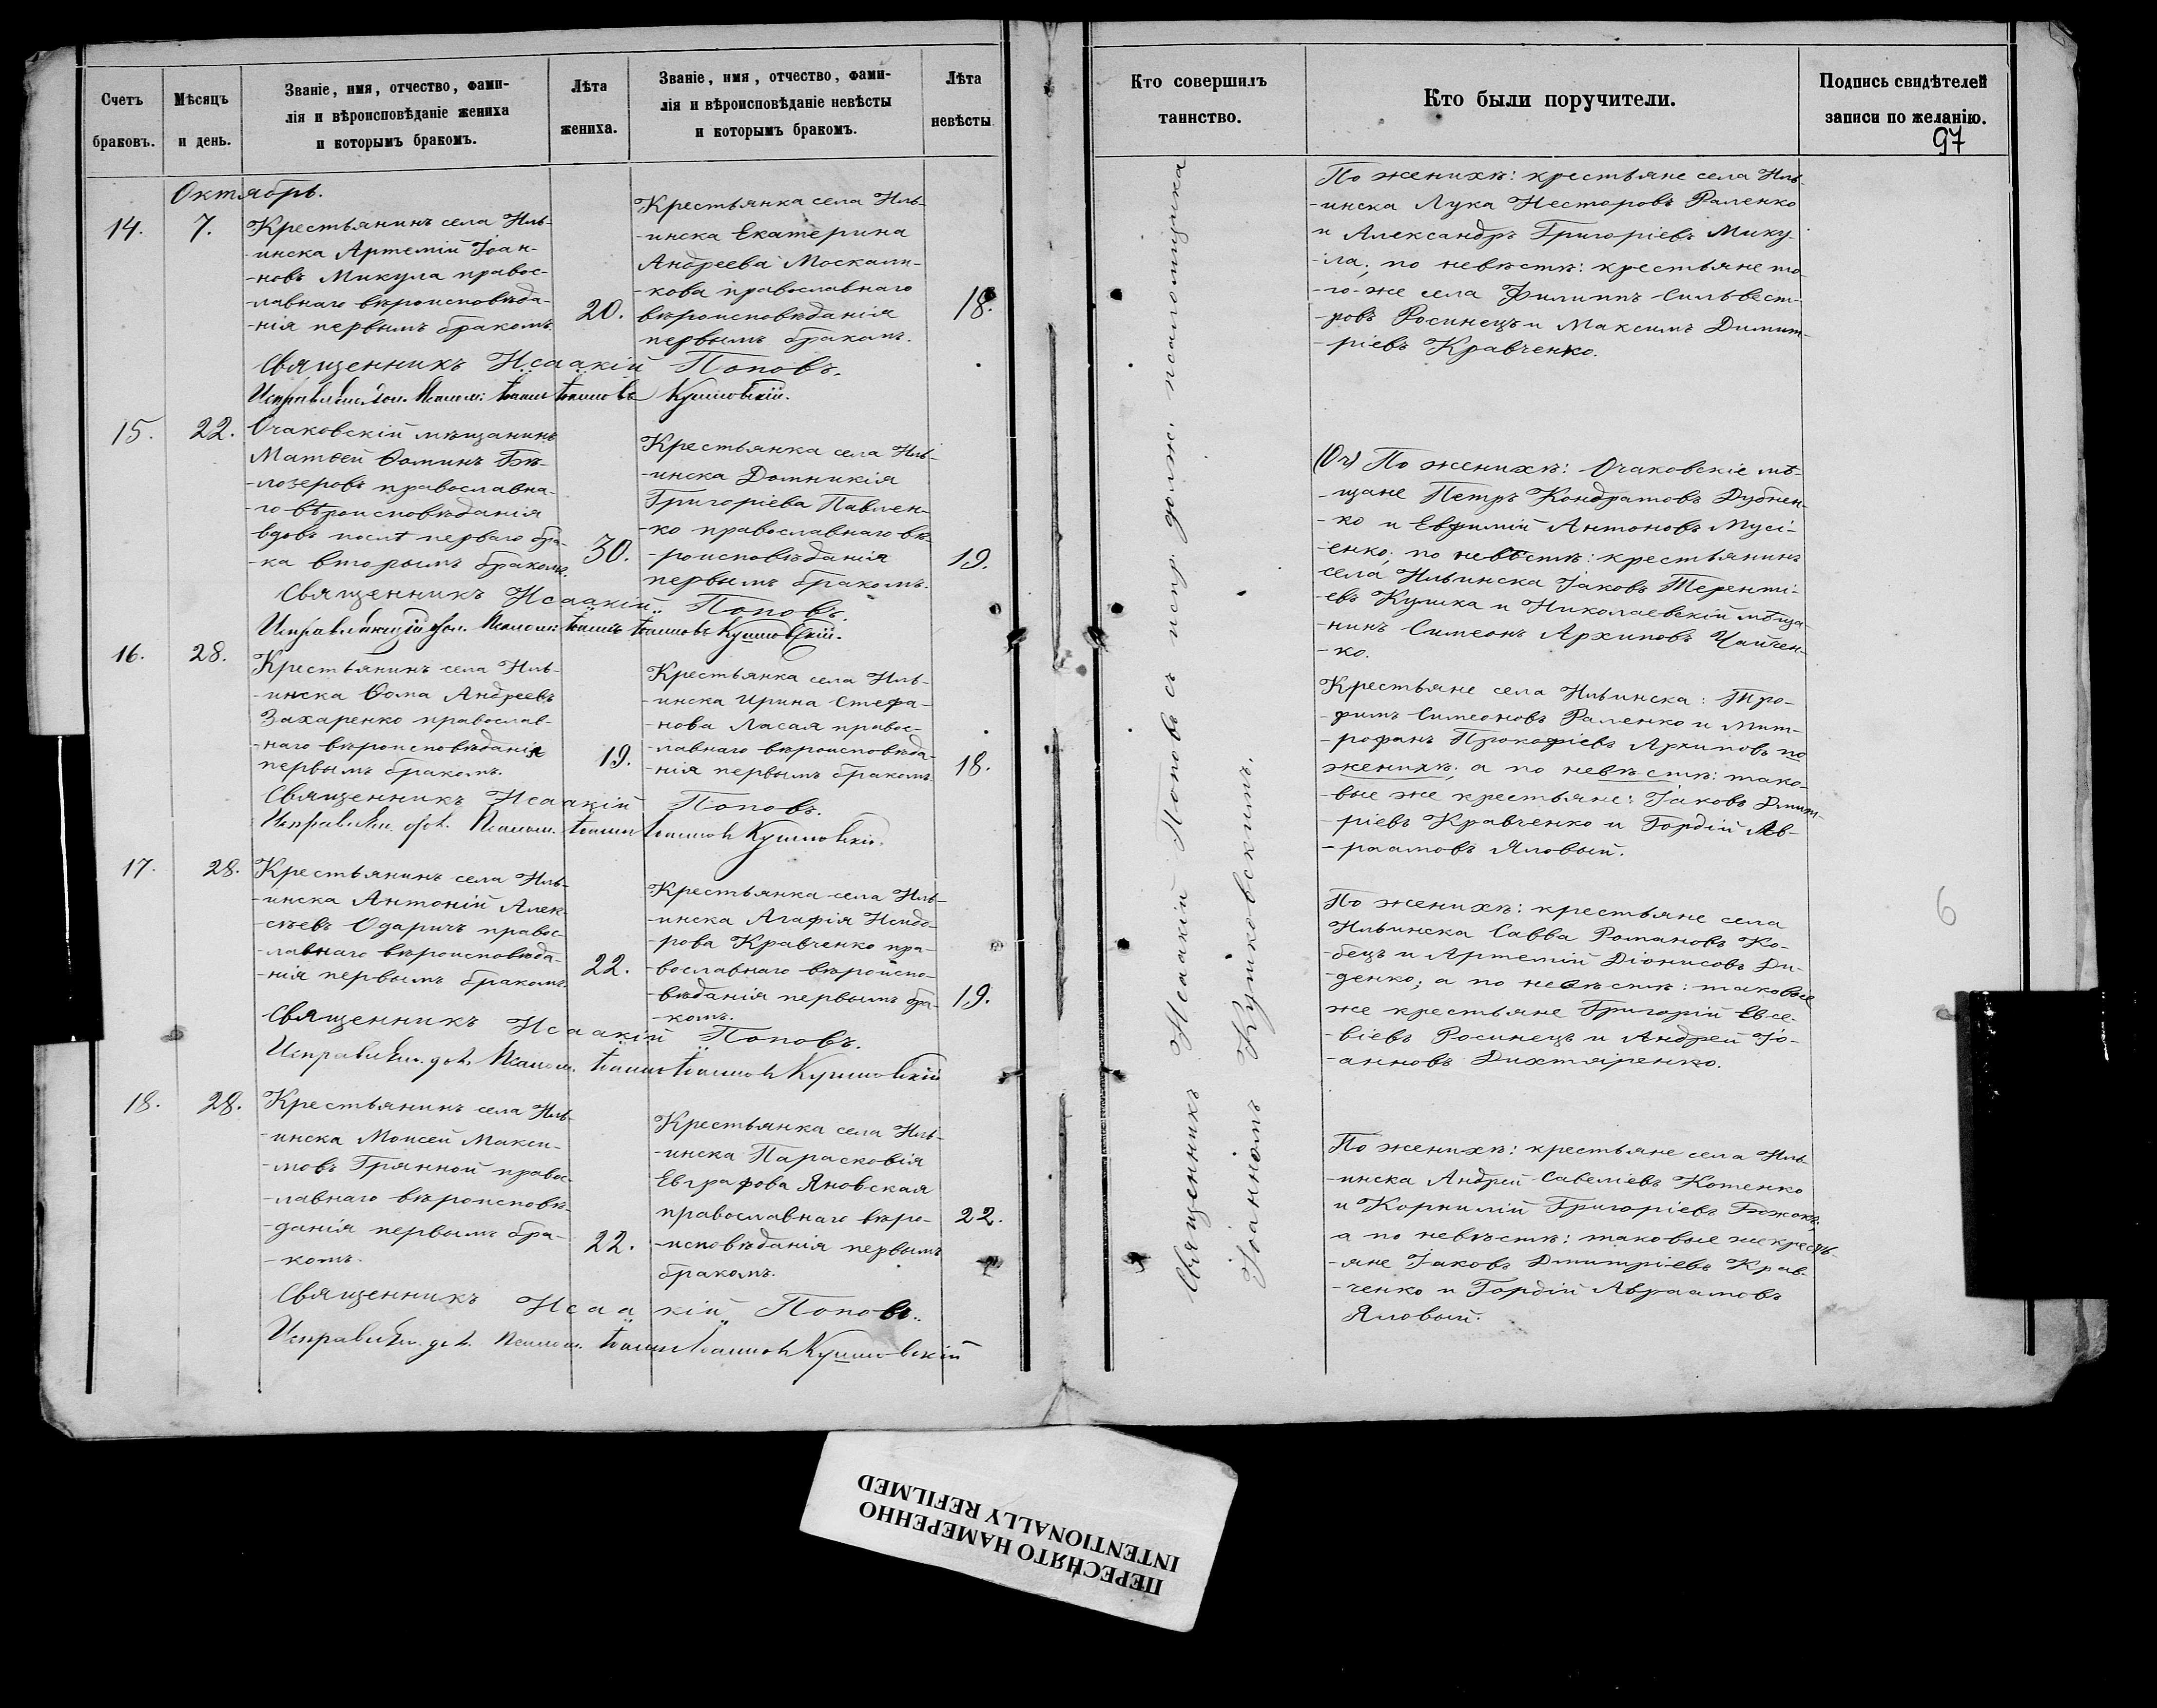 Счетъ
браковъ.
Мѣсяцъ
и день.
Званіе, имя, отчество, фами-
лія и вѣроисповѣданіе жениха
и которымъ бракомъ.
Лѣта
жениха.
Званіе, имя, отчество, фами-
лія и вѣроисповѣданіе невѣсты
и которымъ бракомъ.
Лѣта
невѣсты
Октябрь.
14.
7.
Крестьянинъ села Иль-
-инска Артемій Іоан-
-новъ Микула правос-
-лавнаго вѣроисповѣда-
-нія первымъ бракомъ.
20.
Крестьянка села Иль-
-инска Екатерина
Андреева Москали-
-кова православнаго
вѣроисповѣданія
первымъ бракомъ.
18.
Священникъ Исаакій Поповъ.
15.
22.
Очаковскій мѣщанинъ
Матѳей Ѳоминъ Бѣ-
-лозеровъ православна-
-го вѣроисповѣданія
вдовъ послѣ перваго бра-
-ка вторымъ бракомъ.
30.
Крестьянка села Иль-
-инска Домникія
Григоріева Павлен-
-ко православнаго вѣ-
-роисповѣданія
первымъ бракомъ.
19.
Священникъ Исаакій Поповъ.
16.
28.
Крестьянинъ села Иль-
-инска Ѳома Андреевъ
Захаренко православ-
-наго вѣроисповѣданія
первымъ бракомъ.
19.
Крестьянка села Иль-
-инска Ирина Стефа-
-нова Ласая правос-
-лавнаго вѣроисповѣда-
-нія первымъ бракомъ.
18.
Священникъ Исаакій Поповъ.
17.
28.
Крестьянинъ села Иль-
-инска Антоній Алек-
-сѣевъ Одаричъ правос-
-лавнаго вѣроисповѣда-
-нія первымъ бракомъ.
22.
Крестьянка села Иль-
-инска Агафія Исидо-
-рова Кравченко пра-
-вославнаго вѣроиспо-
-вѣданія первымъ бра-
-комъ.
19.
Священникъ Исаакій Поповъ.
18.
28.
Крестьянинъ села Иль-
-инска Моисей Макси-
-мовъ Грянной правос-
-лавнаго вѣроисповѣ-
-данія первымъ бра-
-комъ.
22.
Крестьянка села Иль-
-инска Парасковія
Евграфова Яновская
православнаго вѣро-
-исповѣданія первымъ
бракомъ.
22.
Священникъ Исаакій Поповъ.
Кто совершилъ
таинство.
Кто были поручители.
Подпись свидѣтелей
записи по желанію.
97
Священникъ Исаакій Поповъ съ испр. долж. псаломщика
Іоанномъ Кушковскимъ.
По женихѣ: крестьяне села Иль-
-инска Лука Несторовъ Раленко
и Александръ Григоріевъ Мику-
-ла; по невѣстѣ: крестьяне то-
-го-же села Филиппъ Сильвест-
-ровъ Росинецъ и Максимъ Димит-
-ріевъ Кравченко.
(Оч) По женихѣ: Очаковскіе мѣ-
-щане Петръ Кондратовъ Дубнен-
-ко и Евфимій Антоновъ Мусі-
-енко; по невѣстѣ: крестьянинъ
села Ильинска Іаковъ Теренті-
-евъ Кушка и Николаевскій мѣща-
-нинъ Симеонъ Архиповъ Чайчен-
-ко.
Крестьяне села Ильинска: Тро-
-фимъ Симеоновъ Раленко и Мит-
-рофанъ Прокофіевъ Архиповъ по
женихѣ; а по невѣстѣ: тако-
-вые же крестьяне: Іаковъ Дмит-
-ріевъ Кравченко и Гордій Ав-
-раамовъ Яловый.
По женихѣ: крестьяне села
Ильинска Савва Романовъ Ко-
-бецъ и Артемій Діонисовъ Ди-
-денко; а по невѣстѣ: таковые
же крестьяне Григорій Евсе-
-віевъ Росинецъ и Андрей Іо-
-анновъ Дихтяренко.
По женихѣ: крестьяне села Иль-
-инска Андрей Савеліевъ Котенко
и Корнилій Григоріевъ Божокъ,
а по невѣстѣ: таковые же кресть-
-яне Іаковъ Дмитріевъ Крав-
-ченко и Гордій Авраамовъ
Яловый.
6
ПЕРЕСНЯТО НАМЕРЕННО
INTENTIONALLY REFILMED